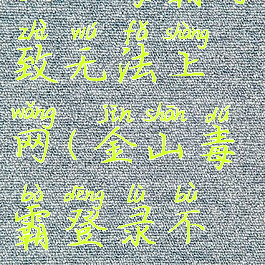 zhì wú fǎ shàng
致无法上
wǎng jīn shān dú
网(金山毒
bà dēng lù bù
霸登录不